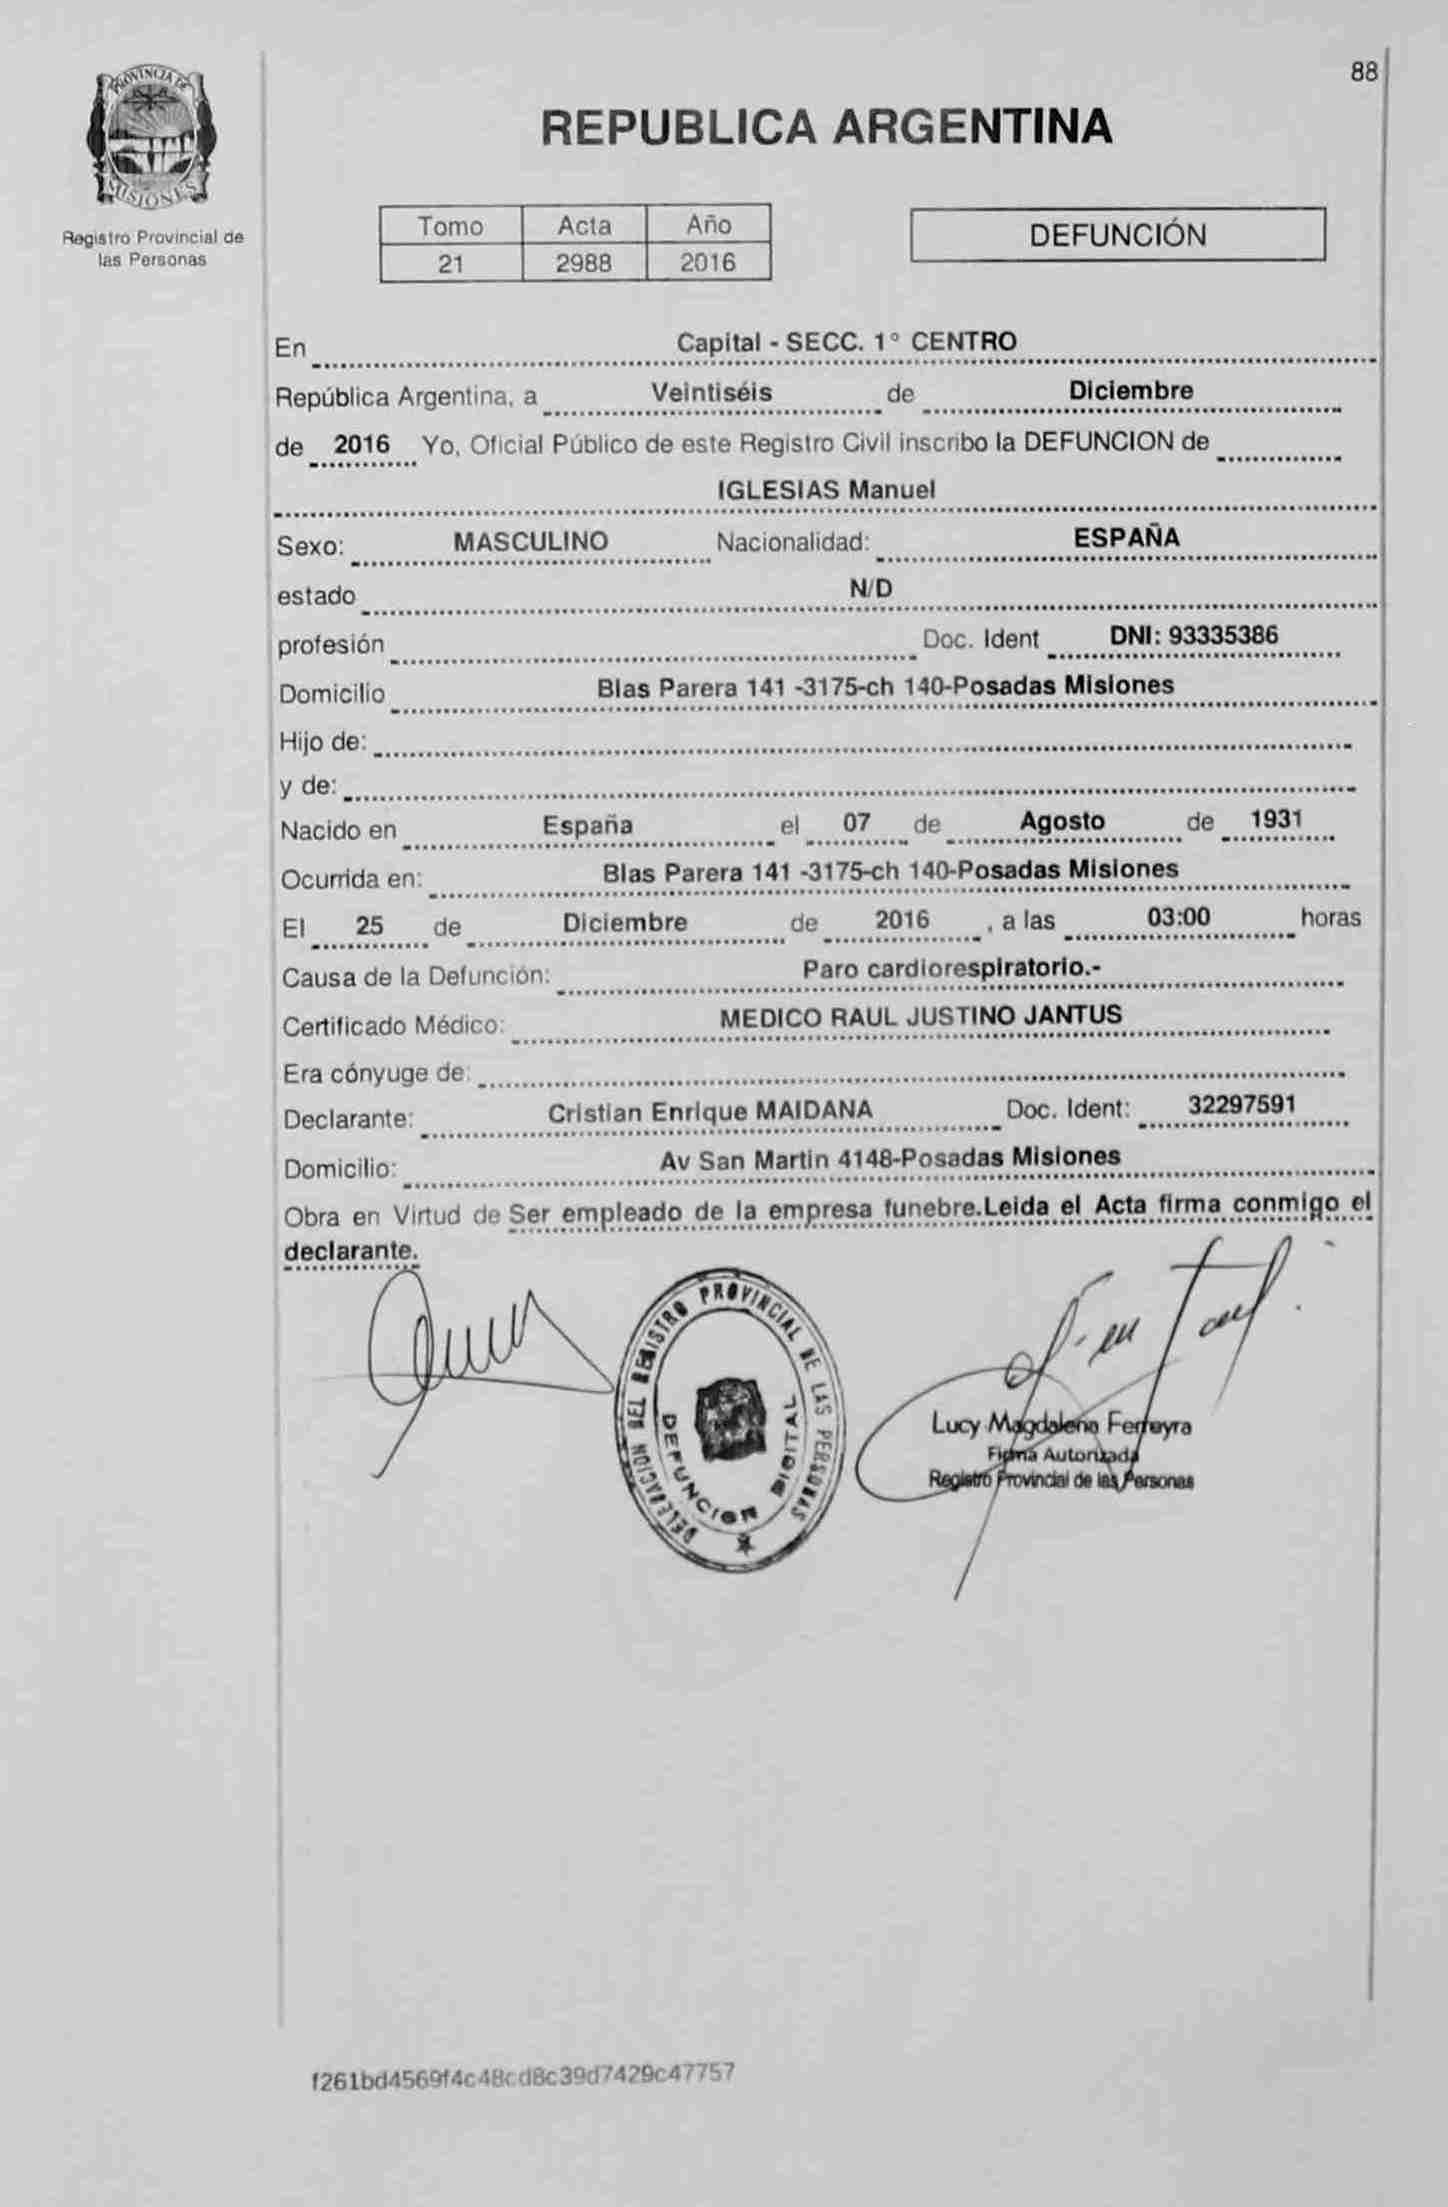 88
PROVINCIA DE
MISIONES
Registro Provincial de
las Personas
REPUBLICA ARGENTINA
Tomo Acta Año
21 2988 2016
DEFUNCIÓN
En Capital - SECC. 1° CENTRO
República Argentina, a Veintiséis de Diciembre
de 2016 Yo, Oficial Público de este Registro Civil inscribo la DEFUNCION de
IGLESIAS Manuel
Sexo: MASCULINO Nacionalidad: ESPAÑA
estado N/D
profesión Doc. Ident DNI: 93335386
Domicilio Blas Parera 141 -3175-ch 140-Posadas Misiones
Hijo de:
y de:
Nacido en España el 07 de Agosto de 1931
Ocurrida en: Blas Parera 141 -3175-ch 140-Posadas Misiones
El 25 de Diciembre de 2016 , a las 03:00 horas
Causa de la Defunción: Paro cardiorespiratorio.-
Certificado Médico: MEDICO RAUL JUSTINO JANTUS
Era cónyuge de:
Declarante: Cristian Enrique MAIDANA Doc. Ident: 32297591
Domicilio: Av San Martin 4148-Posadas Misiones
Obra en Virtud de Ser empleado de la empresa funebre.Leida el Acta firma conmigo el
declarante.
DELEGACION DEL REGISTRO PROVINCIAL DE LAS PERSONAS
DEFUNCION DIGITAL
Lucy Magdalena Ferreyra
Firma Autorizada
Registro Provincial de las Personas
f261bd4569f4c48cd8c39d7429c47757